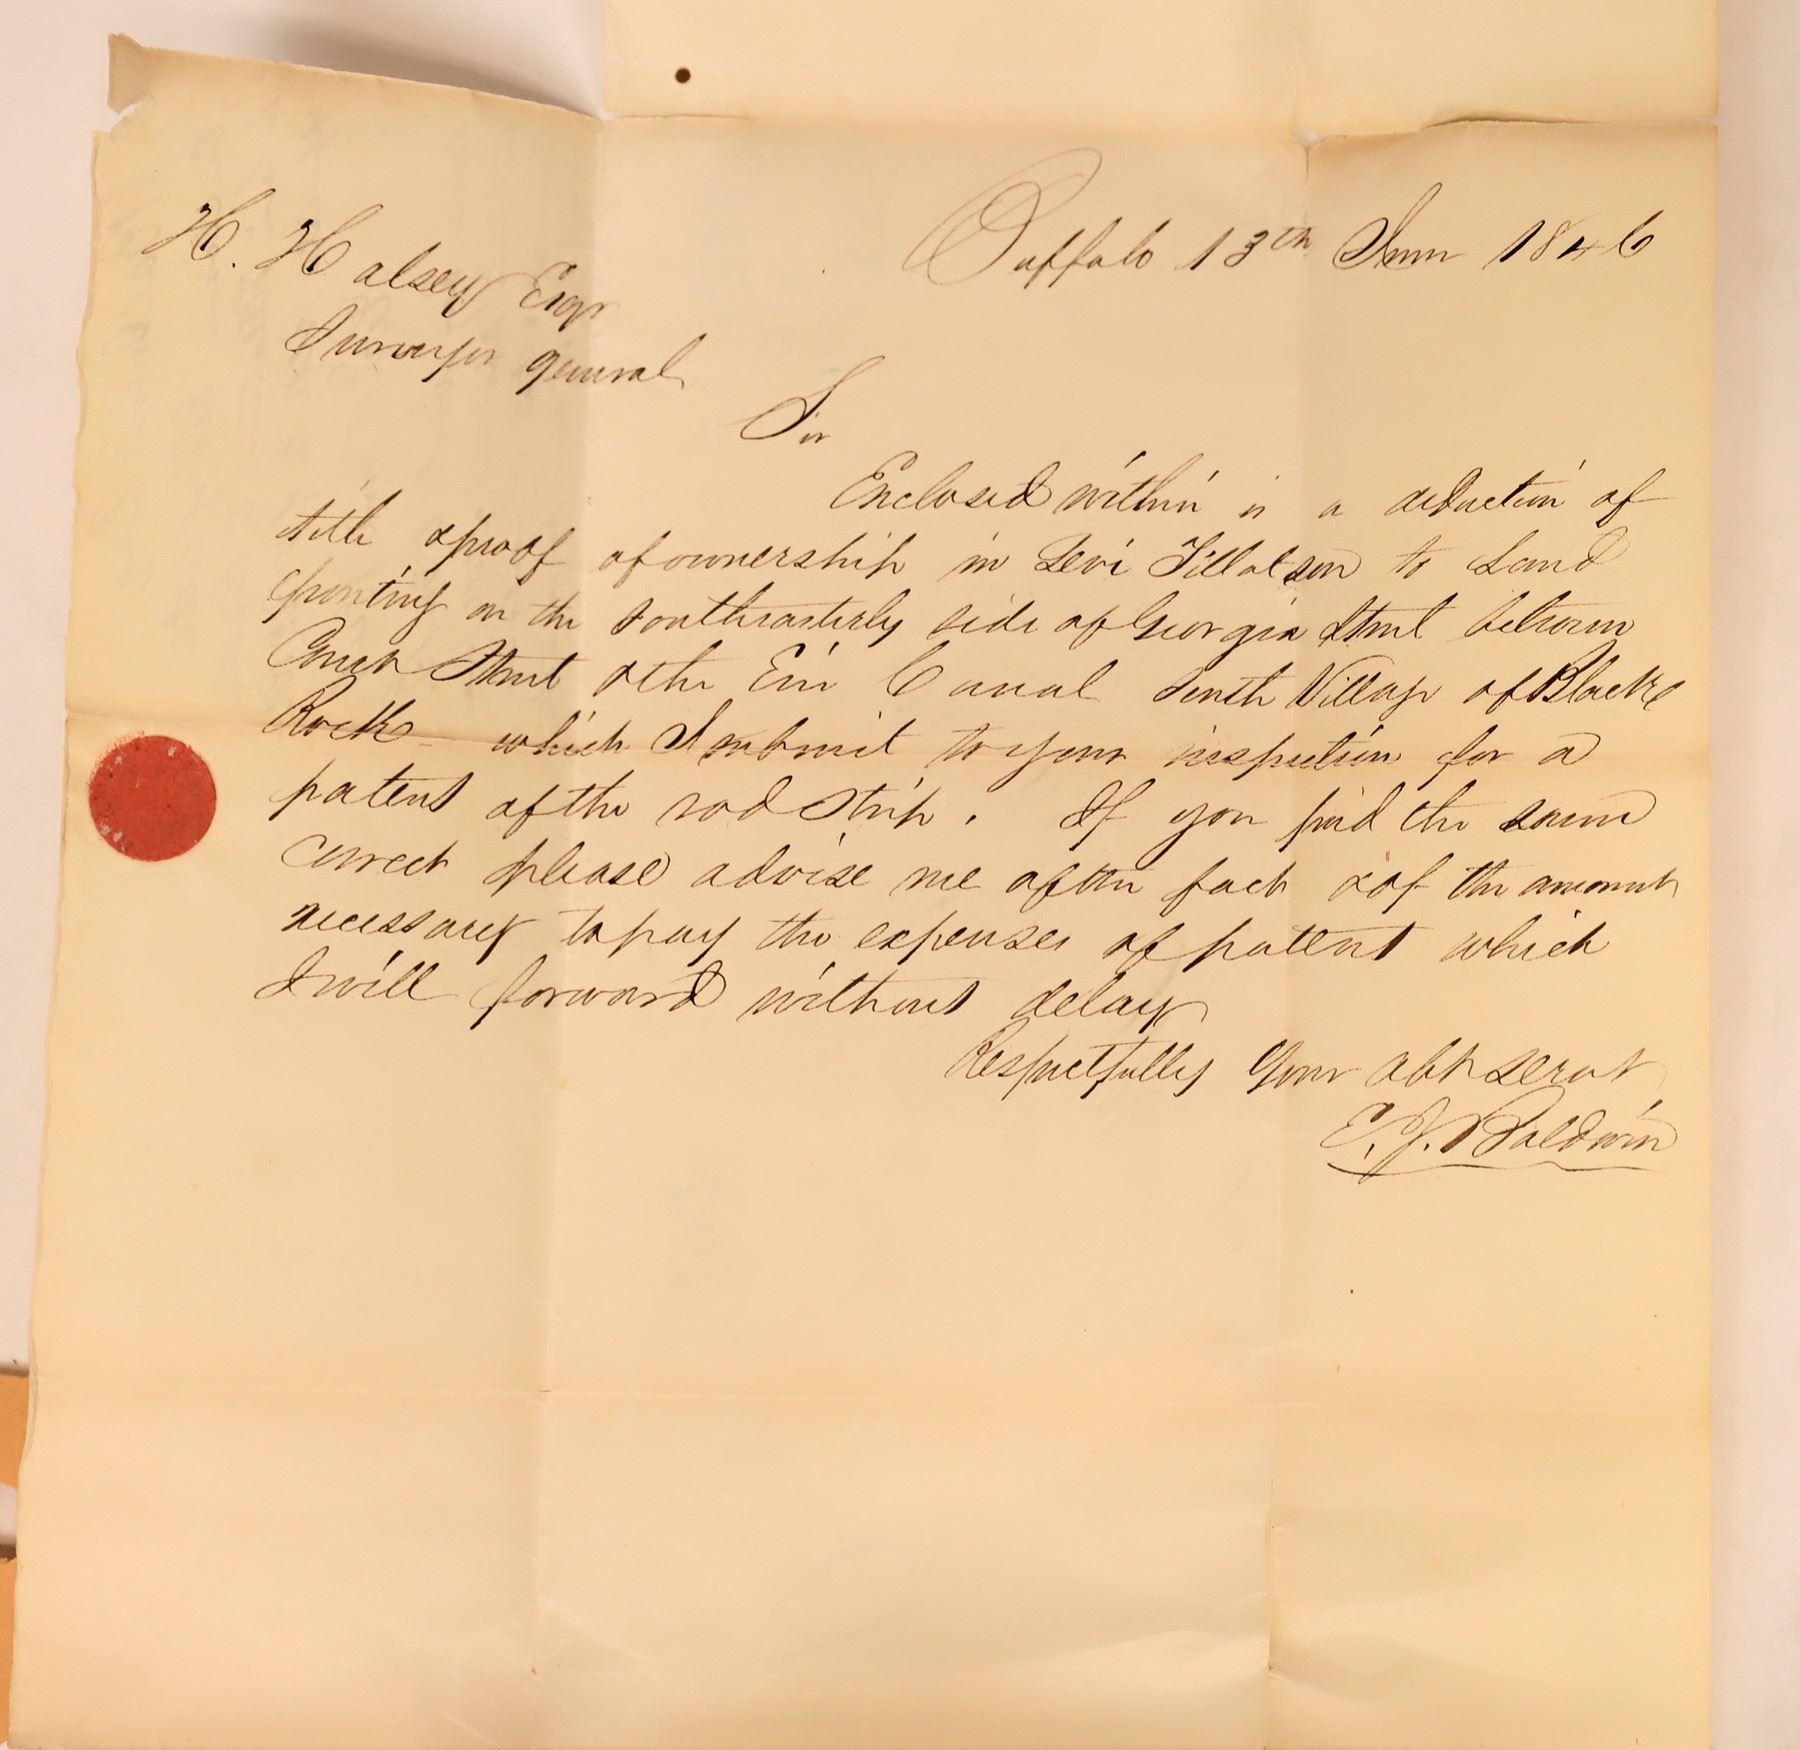 Buffalo 13th June 1846
H. Halsey Esqr
Surveyor general
Sir
Enclosed within is a deduction of
title & proof of ownership in Levi Tillotson to Land
fronting on the southeasterly side of Georgia Street between
Street & the Erie Canal South Village of Black
Rock which I submit to your inspection for a
patent of the rod strip. If you find the same
correct please advise me of the fact & of the amount
necessary to pay the expenses of patent which
I will forward without delay
Respectfully Your obt servt
E. J. Baldwin